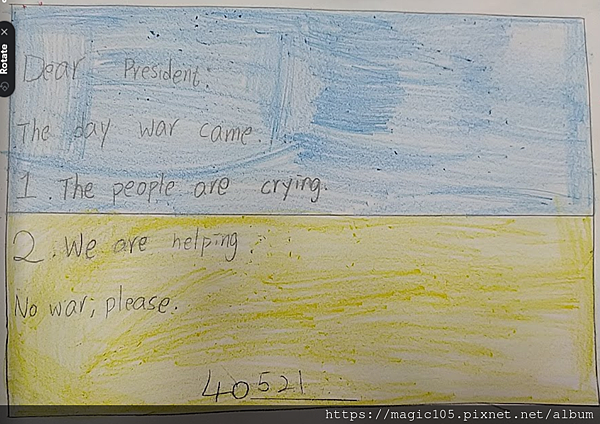 Rotate
Dear President:
The day war came.
1. The people are crying.
2. We are helping
No war, please.
40521
https://magic105.pixnet.net/album